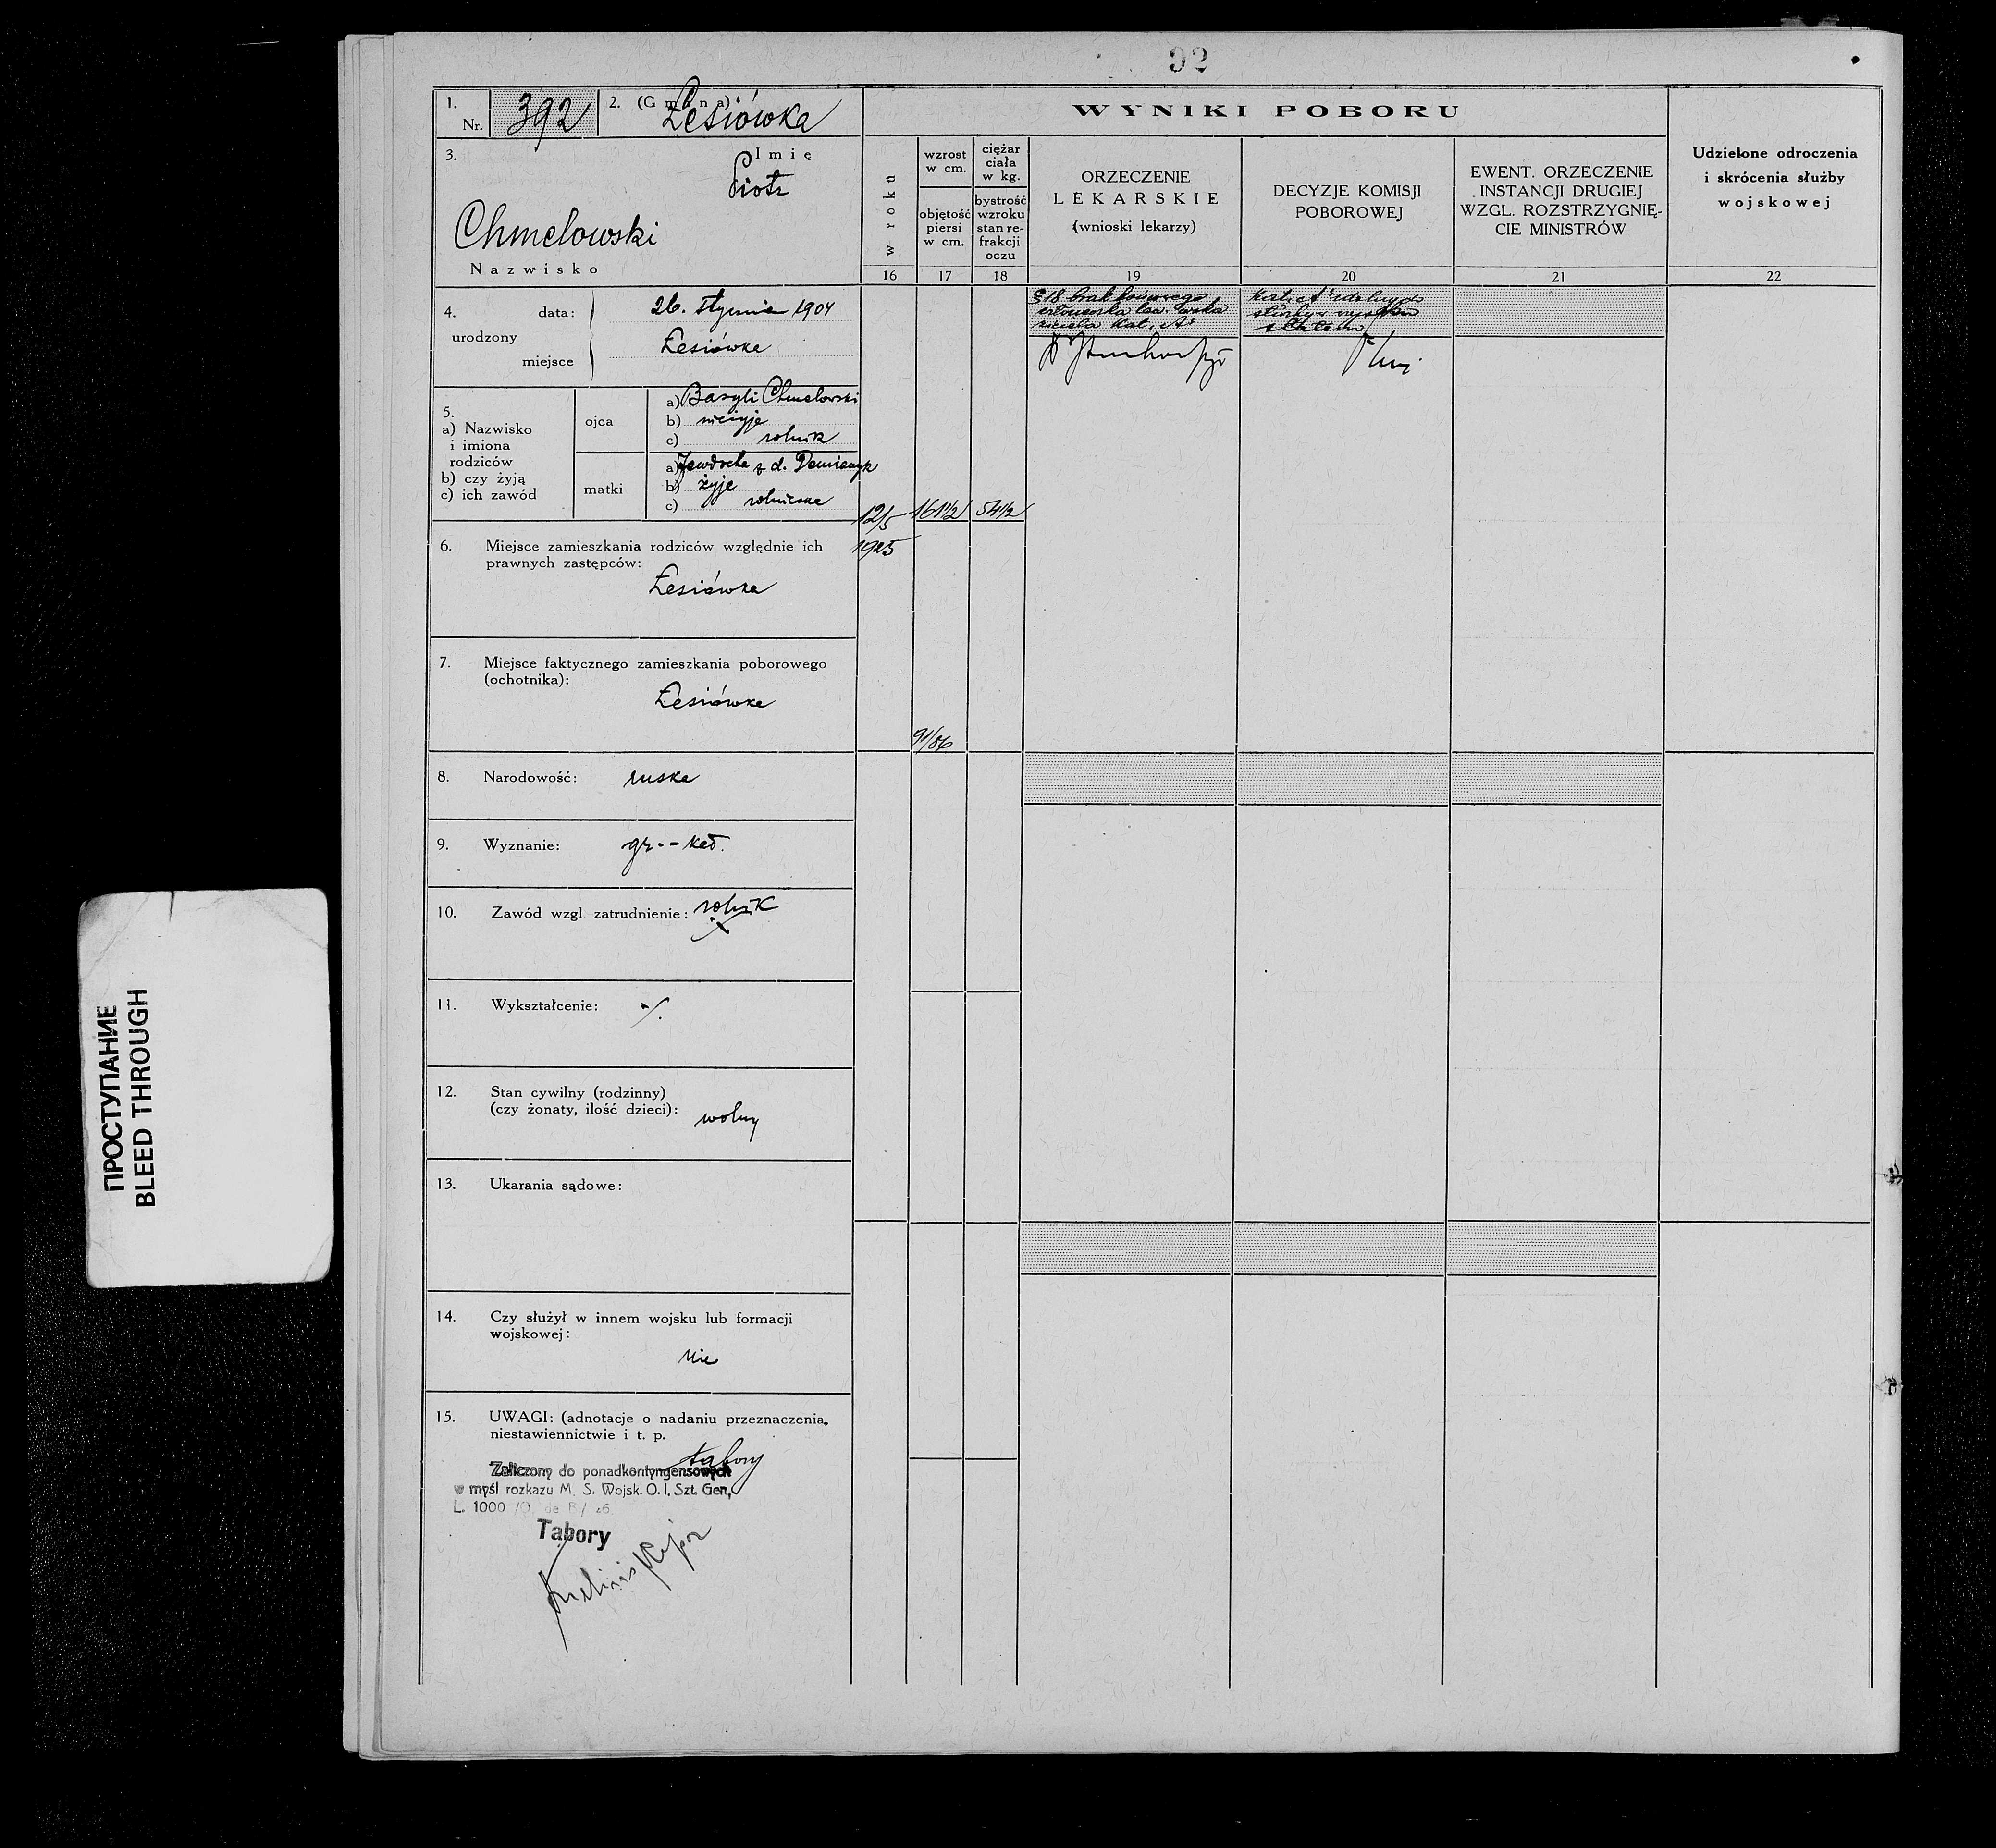 92
1.
Nr. 392
2. (Gmina)
Łesiówka
3.
Imię
Piotr
Chmelowski
Nazwisko
4. urodzony
data: 26. stycznia 1904
miejsce Łesiówka
5.
a) Nazwisko
i imiona
rodziców
b) czy żyją
c) ich zawód
ojca
a) Basyli Chmelowski
b) nieżyje
c) rolnik
matki
a) Jewdocha z d. Demianyk
b) żyje
c) rolniczka
6. Miejsce zamieszkania rodziców względnie ich
prawnych zastępców:
Łesiówka
7. Miejsce faktycznego zamieszkania poborowego
(ochotnika):
Łesiówka
8. Narodowość: ruska
9. Wyznanie: gr.-kat.
10. Zawód wzgl zatrudnienie: rolnik
11. Wykształcenie: ./.
12. Stan cywilny (rodzinny)
(czy żonaty, ilość dzieci): wolny
13. Ukarania sądowe:
14. Czy służył w innem wojsku lub formacji
wojskowej:
nie
15. UWAGI: (adnotacje o nadaniu przeznaczenia,
niestawiennictwie i t. p.
tabory
Zaliczony do ponadkontyngensowych
w myśl rozkazu M. S. Wojsk. O. I. Szt. Gen,
L. 1000
Tabory
WYNIKI POBORU
w roku
16
wzrost
w cm.
objętość
piersi
w cm.
17
ciężar
ciała
w kg.
bystrość
wzroku
stan re-
frakcji
oczu
18
ORZECZENIE
LEKARSKIE
(wnioski lekarzy)
19
DECYZJE KOMISJI
POBOROWEJ
20
EWENT. ORZECZENIE
INSTANCJI DRUGIEJ
WZGL. ROZSTRZYGNIĘ-
CIE MINISTRÓW
21
Udzielone odroczenia
i skrócenia służby
wojskowej
22
12/5
1925
161 1/2
54 1/2
91/86
§18 brak
kat. A
ПРОСТУПАНИЕ
BLEED THROUGH